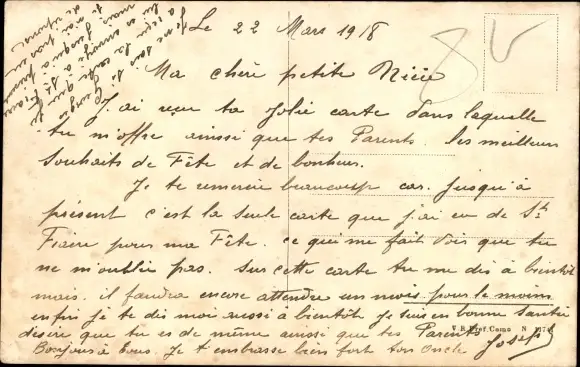 Le 22 Mars 1918
Ma chère petite Nièce
J'ai reçu ta Jolie carte dans laquelle
tu m'offre ainssi que tes Parents. les meilleurs
Souhaits de Fête et de bonheur.
Je te remercie beaucoup car jusqu'à
présent c'est la seule carte que j'ai eu de St
pour ma Fête. ce qui me fait voir que tu
ne m'oublie pas. Sur cette carte tu me dis à bientôt
mais. il faudra encore attendre un mois pour le moins
enfin je te dis moi aussi à bientôt je suis en bonne santée
désire que tu es de même ainssi que tes Parents
Bonjour à tous. Je t'embrasse bien fort ton oncle Joseph
V. B. Prof. Como N
Je ne sai si
a reçu la carte que
je envoyé à St
mais Jusqu'à présent
je n'ai pas eu
de réponse